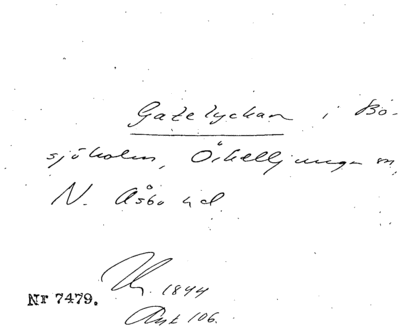 Gatelyckan i Bo-
sjöholm, Örkelljunga sn,
N. Åsbo hd
Nr 7479. 1844
Akt 106.